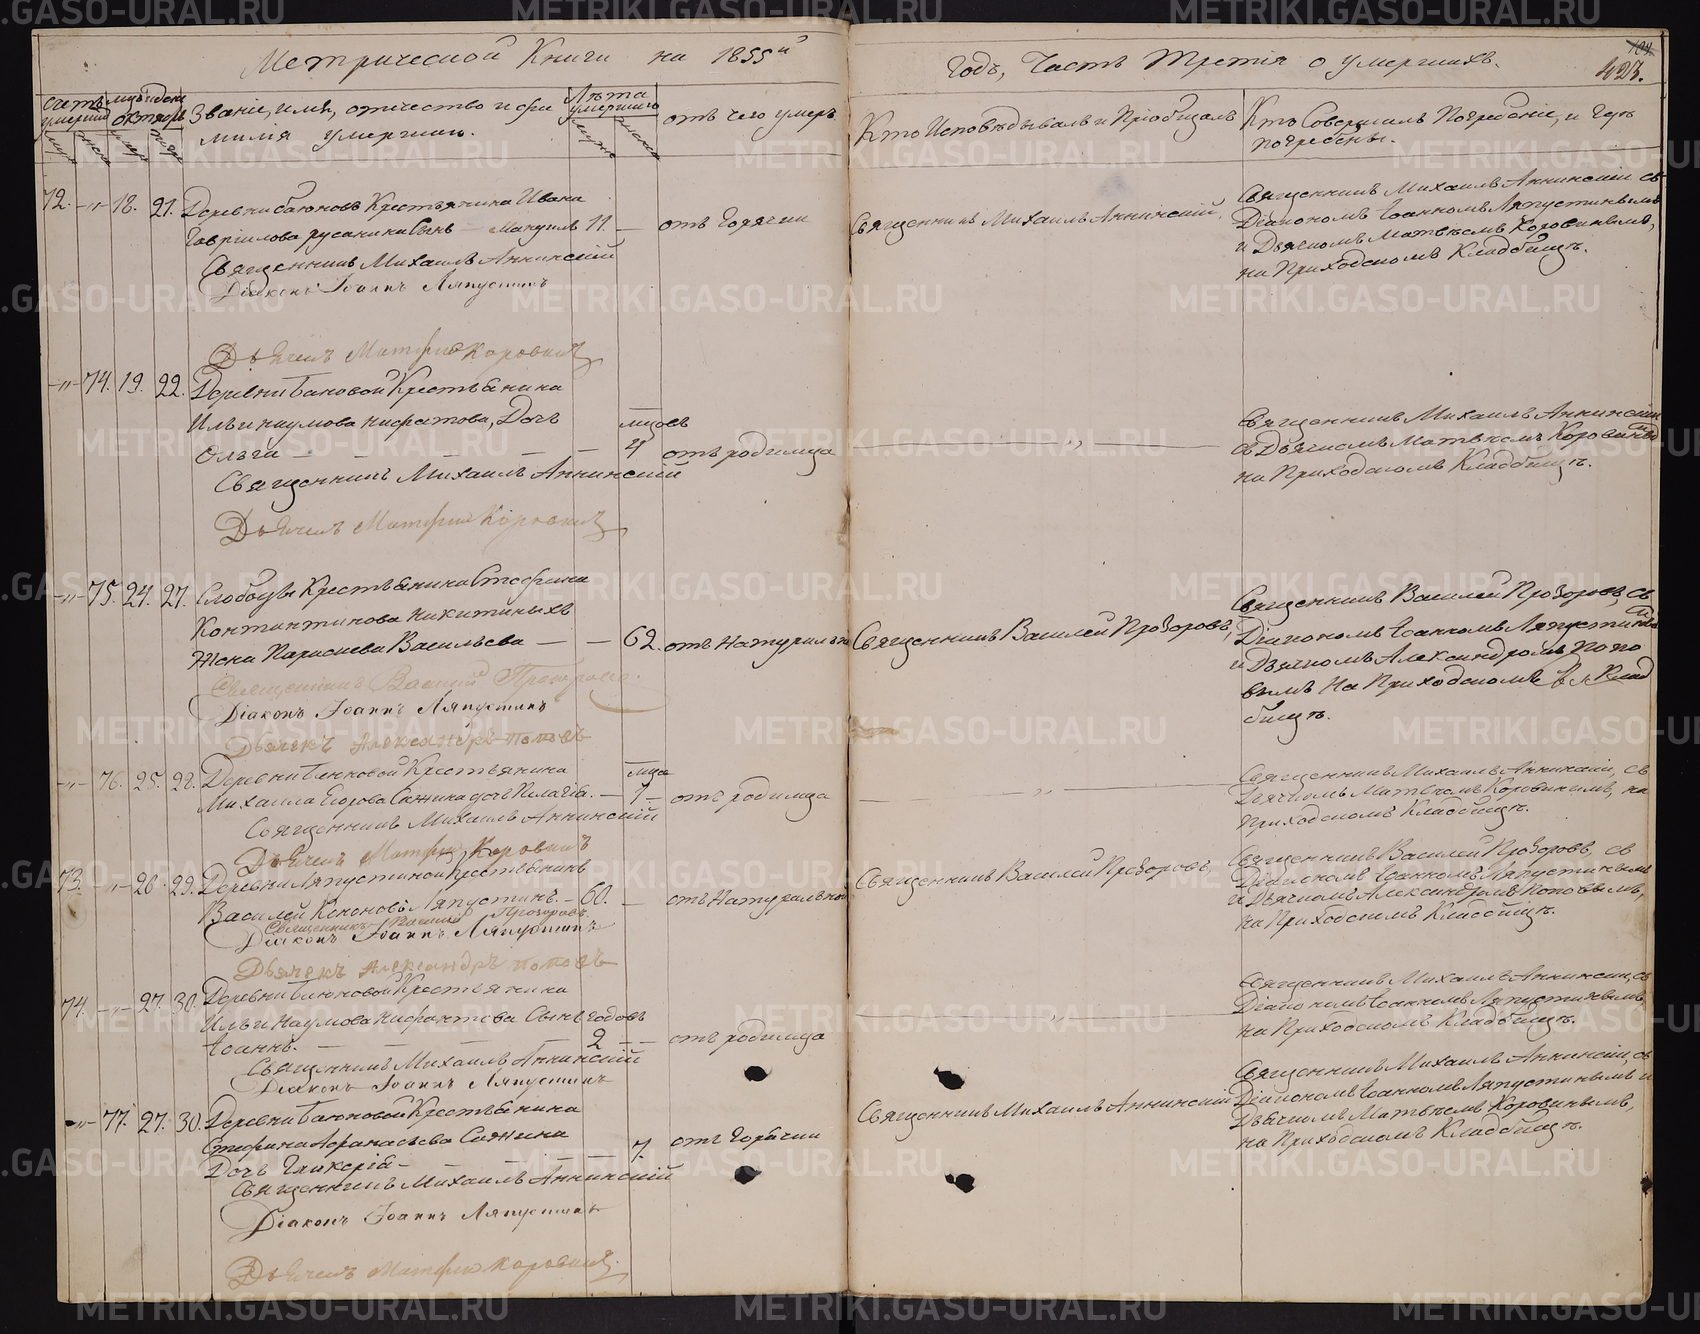 Метрической Книги на 1855й
Годъ, Часть Третія о умершихъ.
423.
Счетъ умершихъ
Мѣсяцъ и день
октябрь
Званіе, имя, отчество и фа
милія умершаго.
Лѣта
умершаго
отъ чего умеръ
Кто Исповѣдывалъ и Пріобщалъ
Кто Совершалъ Погребеніе, и Гдѣ
погребены.
72. -„- 18. 21. Деревни Крестьянина Ивана
Гавріилова Сынъ Мануилъ 11. — отъ Горячки
Священникъ Михаилъ Аннинскій
Діаконъ Іоаннъ Ляпустинъ
Дьячекъ Матфій Коровинъ
Священникъ Михаилъ Аннинскій,
Священникъ Михаилъ Аннинскій съ
Діакономъ Іоанномъ Ляпустинымъ
и Дьячкомъ Матвѣемъ Коровинымъ,
на Приходскомъ Кладбищѣ.
-„- 74. 19. 22. Деревни Крестьянина
Ильи Наумова Дочь
Ольга — — — — — 4 отъ родимца
Священникъ Михаилъ Аннинскій
Дьячекъ Матфій Коровинъ
— „ —
Священникъ Михаилъ Аннинскій
съ Дьячкомъ Матвѣемъ Коровинымъ
на Приходскомъ Кладбищѣ.
-„- 75. 24. 27. Слободы Крестьянина Стефана
Никитиныхъ
Жена Параскева Васильева — — 62. отъ Натуральной
Священникъ Василій Прозоровъ.
Діаконъ Іоаннъ Ляпустинъ
Дьячекъ Александръ Поповъ
Священникъ Василей Прозоровъ,
Священникъ Василей Прозоровъ, съ
Діакономъ Іоанномъ Ляпустинымъ
и Дьячкомъ Александромъ Попо
вымъ На Приходскомъ Клад
бищѣ.
-„- 76. 25. 28. Деревни Крестьянина
Михаила Егорова Сажина дочь Пелагія. — 7 — отъ родимца
Священникъ Михаилъ Аннинскій
Дьячекъ Матфій Коровинъ
— „ —
Священникъ Михаилъ Аннинскій, съ
Дьячкомъ Матвѣемъ Коровинымъ, на
Приходскомъ Кладбищѣ.
73. -„- 26. 29. Деревни Ляпустиной Крестьянинъ
Василей Ляпустинъ. — 60. — отъ Натуральной
Священникъ Василій Прозоровъ.
Діаконъ Іоаннъ Ляпустинъ
Дьячекъ Александръ Поповъ
Священникъ Василей Прозоровъ,
Священникъ Василей Прозоровъ, съ
Діакономъ Іоанномъ Ляпустинымъ
и Дьячкомъ Александромъ Поповымъ,
на Приходскомъ Кладбищѣ.
74. -„- 27. 30. Деревни Крестьянина
Ильи Наумова Сынъ годовъ
Іоаннъ. — — — — 2 — — отъ родимца
Священникъ Михаилъ Аннинскій
Діаконъ Іоаннъ Ляпустинъ
— „ —
Священникъ Михаилъ Аннинскій, съ
Діакономъ Іоанномъ Ляпустинымъ,
на Приходскомъ Кладбищѣ.
-„- 77. 27. 30. Деревни Крестьянина
Стефана Афанасьева Сажина
Дочь Гликерія — — — — 7. отъ Горячки
Священникъ Михаилъ Аннинскій
Діаконъ Іоаннъ Ляпустинъ
Дьячекъ Матфій Коровинъ.
Священникъ Михаилъ Аннинскій
Священникъ Михаилъ Аннинскій, съ
Діакономъ Іоанномъ Ляпустинымъ и
Дьячкомъ Матвѣемъ Коровинымъ,
на Приходскомъ Кладбищѣ.
METRIKI.GASO-URAL.RU